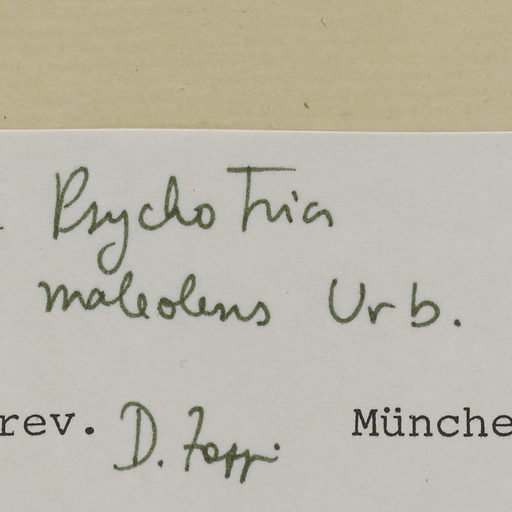 Psychotria
maleolens Urb.
rev. D. Zappi Münche